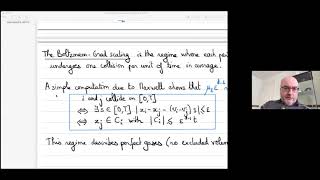 The Boltzmann-Grad scaling is the regime where each
undergoes one collision per unit of time in average.
A simple computation due to Maxwell shows that
i and j collide on [0,T]
⟺ ∃ s ∈ [0,T] |xi - xj - (vi - vj) s| ≤ ε
⟺ xj ∈ Ci with |Ci| ≤ ε^{d-1} t
This regime describes perfect gases (no excluded